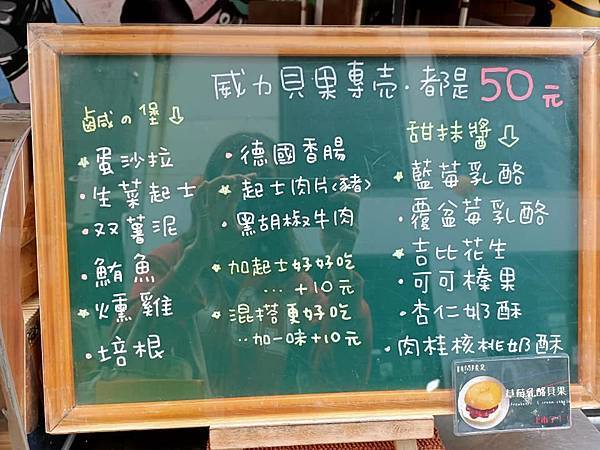 威力貝果專売·都是50元
鹹の堡⇩
★蛋沙拉
·生菜起士
·双薯泥
·鮪魚
★燻雞
·培根
·德國香腸
★起士肉片(豬)
·黑胡椒牛肉
★加起士好好吃
...+10元
★混搭更好吃
..加一味+10元
甜抹醬⇩
★藍莓乳酪
·覆盆莓乳酪
★吉比花生
·可可榛果
·杏仁奶酥
·肉桂核桃奶酥
草莓乳酪貝果